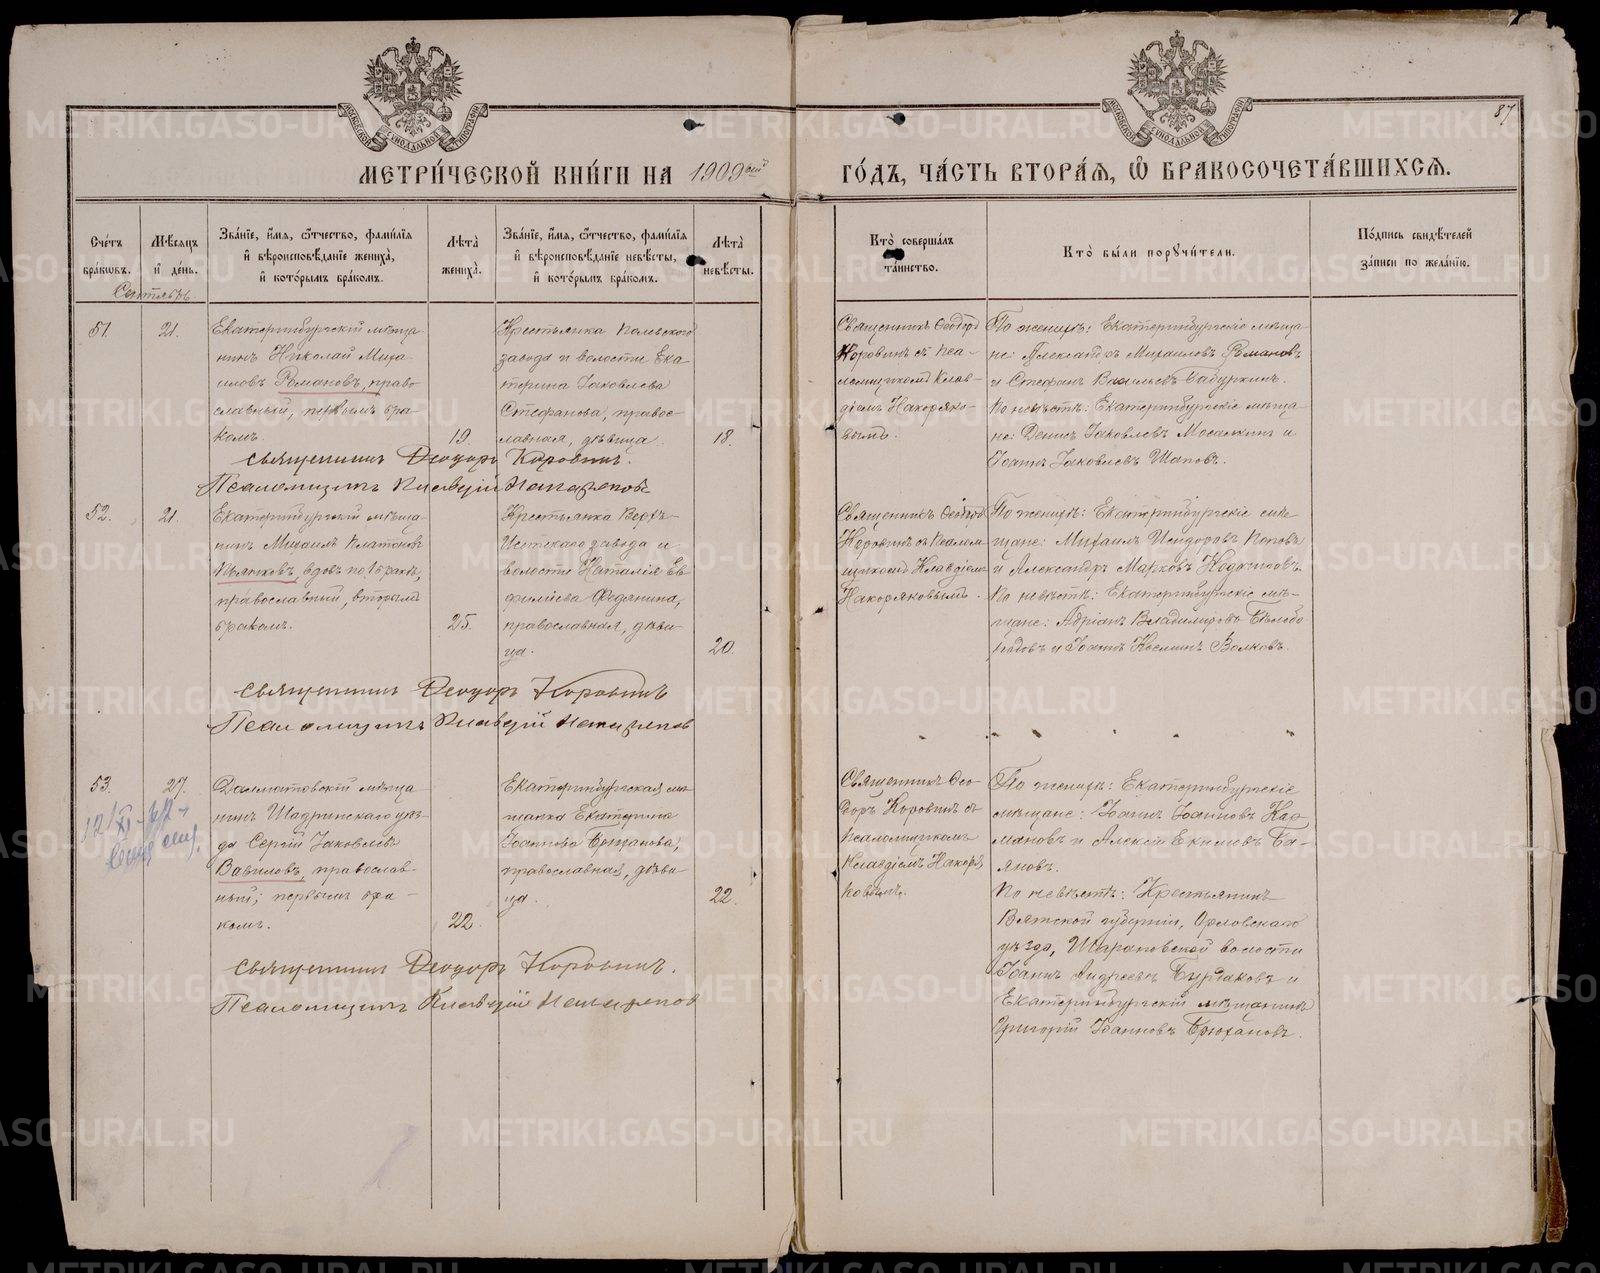 МОСКОВСКОЙ СѴНОДАЛЬНОЙ ТИПОГРАФІИ
МОСКОВСКОЙ СѴНОДАЛЬНОЙ ТИПОГРАФІИ
87
МЕТРИ́ЧЕСКОЙ КНИ́ГИ НА 1909ый
ГО́ДЪ, ЧА́СТЬ ВТОРА́Я, Ѡ БРАКОСОЧЕТА́ВШИХСЯ.
Сче́тъ бра́ковъ.
Мѣ́сяцъ и де́нь.
Зва́нїе, и́мя, ѻ́тчество, фами́лїя и вѣроисповѣ́данїе жениха̀, и кото́рымъ бра́комъ.
Лѣта̀ жениха̀.
Зва́нїе, и́мя, ѻ́тчество, фами́лїя и вѣроисповѣ́данїе невѣ́сты, и кото́рымъ бра́комъ.
Лѣта̀ невѣ́сты.
Кто̀ соверша́лъ та́инство.
Кто̀ бы́ли порꙋчи́тели.
По́дпись свидѣ́телей за́писи по жела́нїю.
Сентябрь
51.
21.
Екатеринбургскій мѣща-
нинъ Николай Миха-
иловъ Романовъ, право-
славный, первымъ бра-
комъ.
19.
Крестьянка Полевского
завода и волости Ека-
терина Іаковлева
Стефанова, правос-
лавная, дѣвица.
18.
Священникъ Ѳеодоръ
Коровинъ съ пса-
ломщикомъ Клав-
діемъ Накоряко-
вымъ.
По женихѣ: Екатеринбургскіе мѣща-
не: Александръ Михаиловъ Романовъ
и Стефанъ Васильевъ Бабуркинъ.
По невѣстѣ: Екатеринбургскіе мѣща-
не: Денисъ Іаковлевъ Мосалкинъ и
Іоаннъ Іаковлевъ Шаповъ.
Священникъ Ѳеодоръ Коровинъ.
Псаломщикъ Клавдій Накоряковъ
52.
21.
Екатеринбургскій мѣща-
нинъ Михаилъ Платоновъ
вдовъ по 1 бракѣ,
православный, вторымъ
бракомъ.
25.
Крестьянка Верх-
Исетскаго завода и
волости Наталія Ев-
фиміева Федянина,
православная, дѣви-
ца.
20.
Священникъ Ѳеодоръ
Коровинъ съ псалом-
щикомъ Клавдіемъ
Накоряковымъ.
По женихѣ: Екатеринбургскіе мѣ-
щане: Михаилъ Исидоровъ Поповъ
и Александръ Марковъ
По невѣстѣ: Екатеринбургскіе мѣ-
щане: Адріанъ Владимировъ Бѣлобо-
родовъ и Іоаннъ Косминъ Волковъ.
Священникъ Ѳеодоръ Коровинъ
Псаломщикъ Клавдій Накоряковъ
53.
27.
Далматовскій мѣща-
нинъ Шадринскаго уѣз-
да Сергій Іаковлевъ
Вавиловъ, православ-
ный; первымъ бра-
комъ.
22.
Екатеринбургская мѣ-
щанка Екатерина
Іоаннова Брюханова,
православная, дѣви-
ца.
22.
Священникъ Ѳео-
доръ Коровинъ съ
псаломщикомъ
Клавдіемъ Накоря-
ковымъ.
По женихѣ: Екатеринбургскіе
мѣщане: Іоаннъ Іоанновъ Кал-
мановъ и Алексій Екимовъ Ба-
яновъ.
По невѣстѣ: Крестьянинъ
Вятской губерніи, Орловскаго
уѣзда, Шарановской волости
Іоаннъ Андреевъ Бурлаковъ и
Екатеринбургскій мѣщанинъ
Григорій Іоанновъ Брюхановъ.
Священникъ Ѳеодоръ Коровинъ.
Псаломщикъ Клавдій Накоряковъ
METRIKI.GASO-URAL.RU